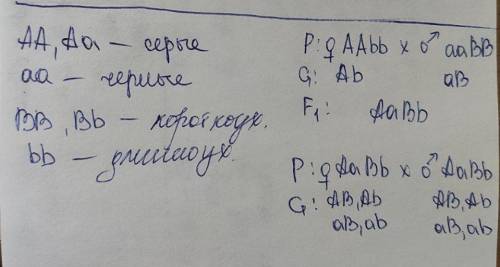 AA, Aa – серые
aa – черные
BB, Bb – короткоух.
bb – длинноух.
P: ♀ AAbb x ♂ aaBB
G: Ab aB
F₁: AaBb
P: ♀ AaBb x ♂ AaBb
G: AB, Ab AB, Ab
aB, ab aB, ab